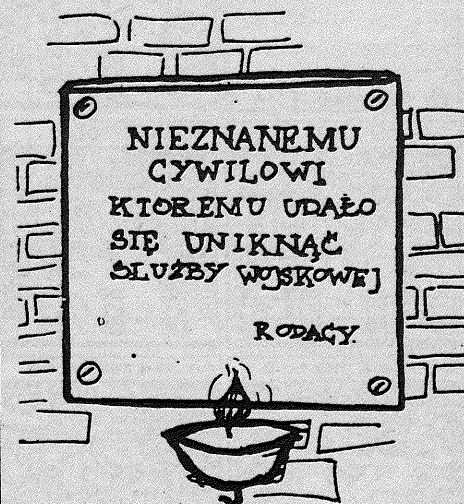 NIEZNANEMU
CYWILOWI
KTOREMU UDAŁO
SIĘ UNIKNĄĆ
SŁUŻBY WOJSKOWEJ
RODACY.